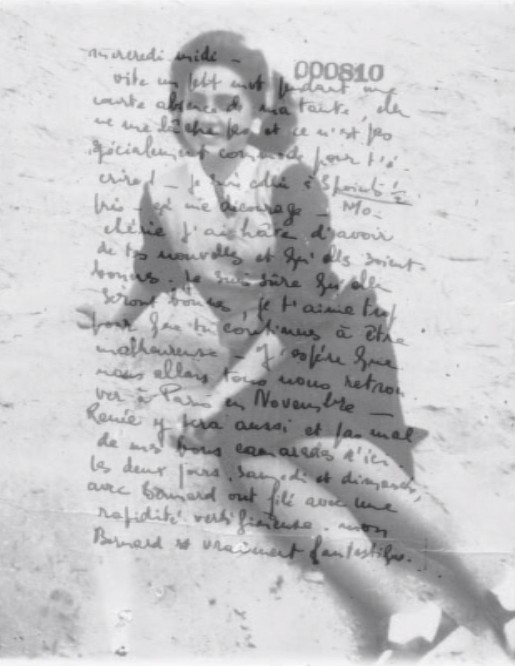 mercredi midi -
000810
vite un petit mot pendant une
courte absence de ma tante, elle
ne me lâche pas et ce n'est pas
spécialement commode pour t'é
crire ! - Je suis à 5
- ça me décourage - Ma
chérie j'ai hâte d'avoir
de tes nouvelles et qu'elles soient
bonnes. Je suis sûre qu'elles
seront bonnes, je t'aime trop
pour que tu continues à être
malheureuse - J'espère que
nous allons tous nous retrou
ver à Paris en Novembre -
Renée y sera aussi et pas mal
de mes bons camarades d'ici.
les deux jours, samedi et dimanche,
avec Bernard ont filé avec une
rapidité vertigineuse. mon
Bernard est vraiment fantastique.